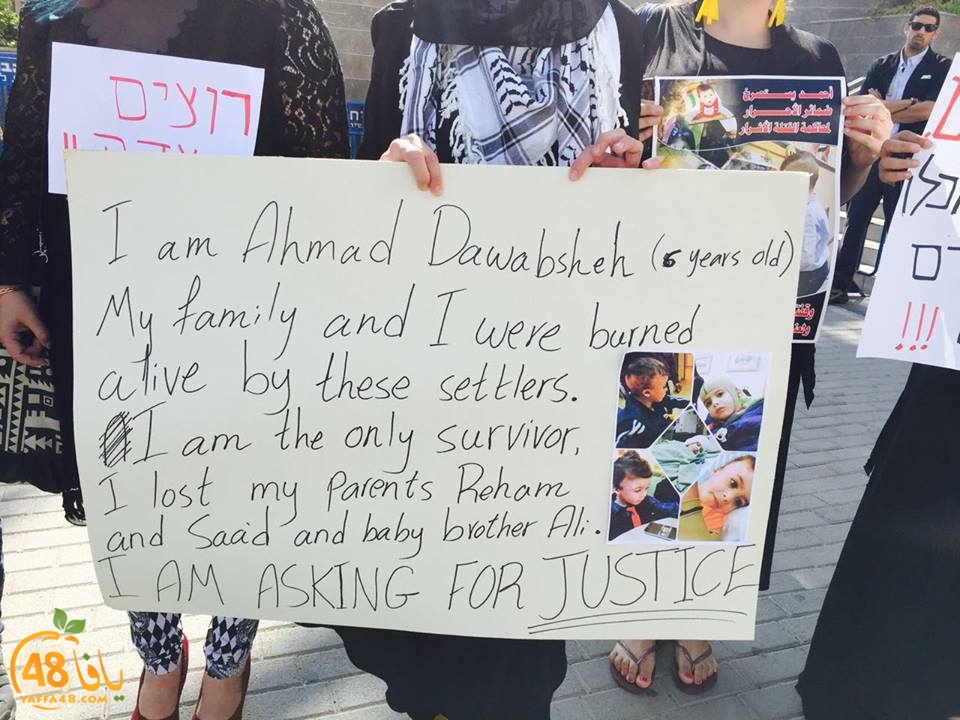 רוצים
I am Ahmad Dawabsheh (5 years old)
My family and I were burned
alive by these settlers.
I am the only survivor,
I lost my Parents Reham
and Saad and baby brother Ali.
I AM ASKING FOR JUSTICE
أحمد يستصرخ
ضمائر الأحرار
لمحاكمة القتلة الأشرار
!!!
48 يافا
YAFFA48.COM